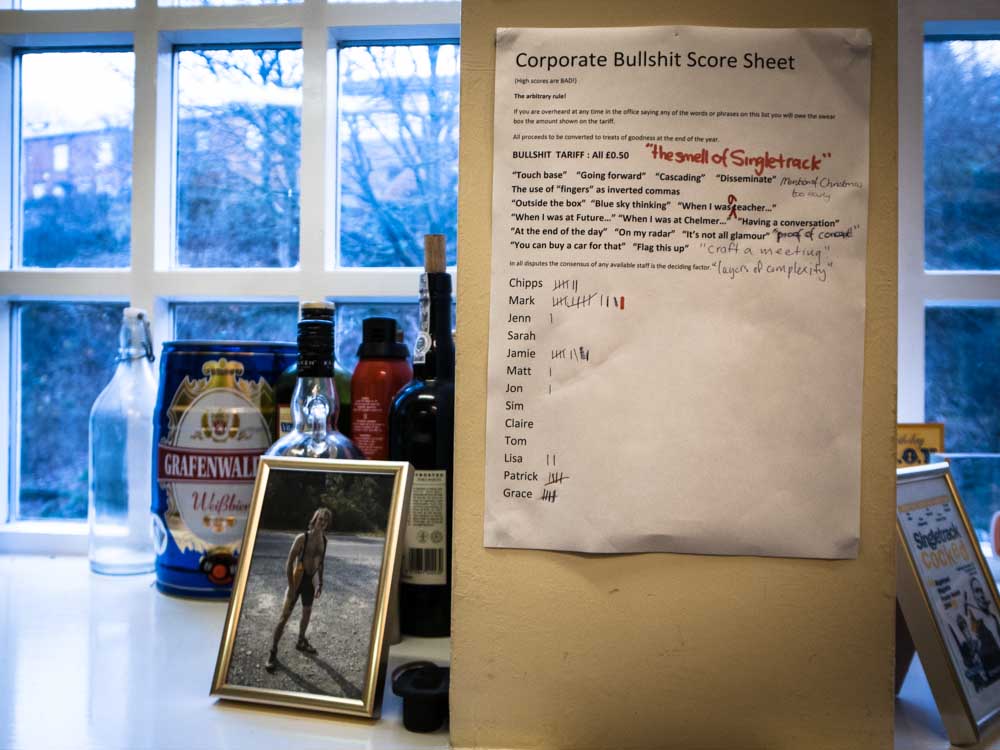 Corporate Bullshit Score Sheet
(High scores are BAD!)
The arbitrary rule!
If you are overheard at any time in the office saying any of the words or phrases on this list you will owe the swear
box the amount shown on the tariff.
All proceeds to be converted to treats of goodness at the end of the year.
BULLSHIT TARIFF : All £0.50 "the smell of Singletrack"
"Touch base" "Going forward" "Cascading" "Disseminate" Mention of Christmas
too early
The use of "fingers" as inverted commas
"Outside the box" "Blue sky thinking" "When I was a teacher..."
"When I was at Future..." "When I was at Chelmer..." "Having a conversation"
"At the end of the day" "On my radar" "It's not all glamour" "proof of concept"
"You can buy a car for that" "Flag this up" "craft a meeting"
In all disputes the consensus of any available staff is the deciding factor. "layers of complexity"
Chipps
Mark
Jenn
Sarah
Jamie
Matt
Jon
Sim
Claire
Tom
Lisa
Patrick
Grace
GRAFENWAL
Weißbier
Singletrack
Cooked